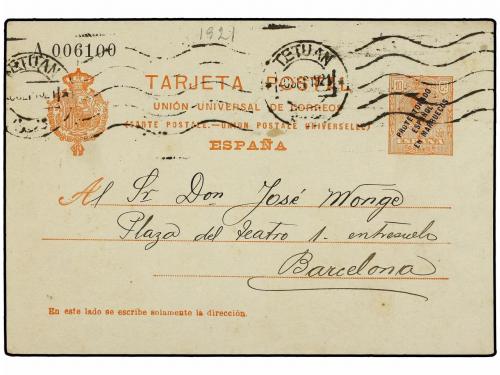 1921
A 006100
TETUAN
TETUAN
TARJETA POSTAL
UNIÓN UNIVERSAL DE CORREOS
(CARTE POSTALE.—UNION POSTALE UNIVERSELLE)
ESPAÑA
PROTECTORADO
ESPAÑOL
EN MARRUECOS
ESPAÑA
Al Sr Don José Monge
Plaza del teatro 1. entresuelo
Barcelona
En este lado se escribe solamente la dirección.